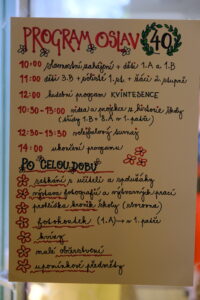 PROGRAM OSLAV 40
10:00 slavnostní zahájení + děti 1.A a 1.B
11:00 děti 3.B + žáci 2. stupně
12:00 hudební program KVINTEDENCE
10:30 - 13:00 videa a projekce z historie školy
(třídy 1.B + 8.A v 1. patře)
12:30 - 13:30 volejbalový turnaj
14:00 ukončení programu
PO CELOU DOBU
setkání s učiteli a spolužáky
výstava fotografií a výtvarných prací
prohlídka kronik školy
fotokoutek (1.A) → v 1. patře
kvízy
malé občerstvení
upomínkové předměty